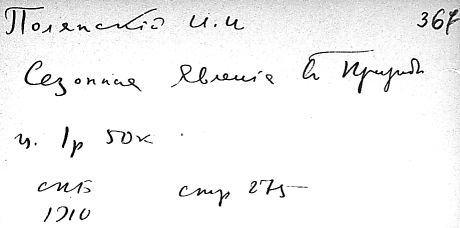 Полянскій И.И 367
Сезонныя явленія въ природѣ
ц. 1р 50к
СПБ стр 275
1910